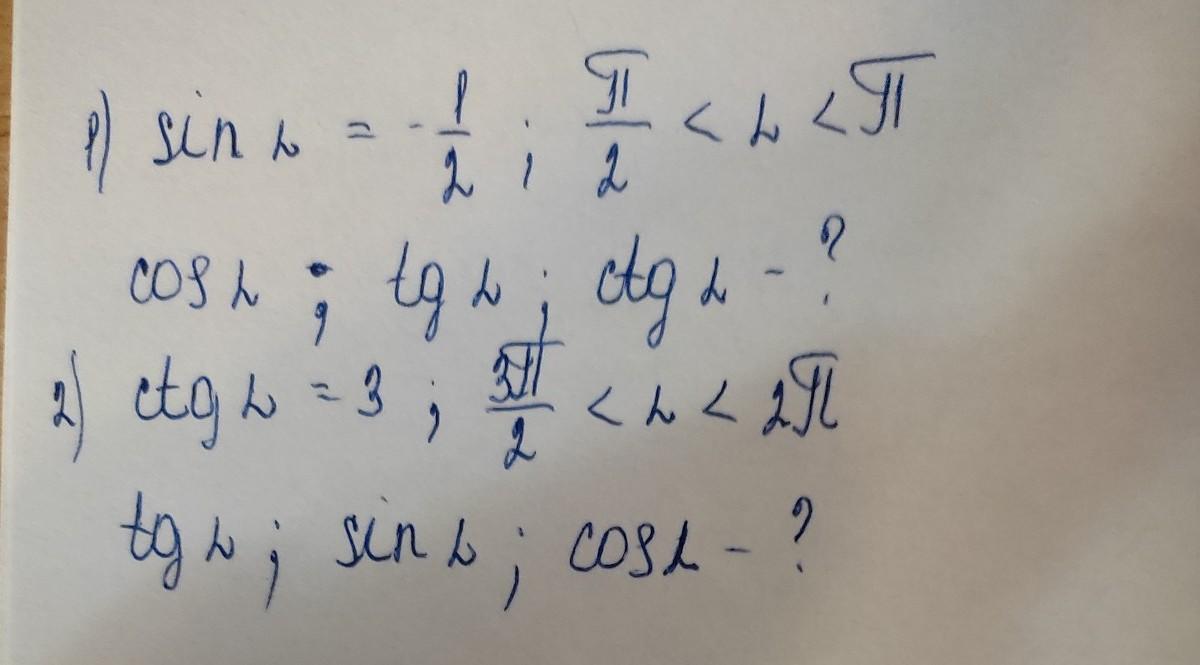 1) sin α = - 1/2 ; π/2 < α < π
cos α ; tg α ; ctg α - ?
2) ctg α = 3 ; 3π/2 < α < 2π
tg α ; sin α ; cos α - ?